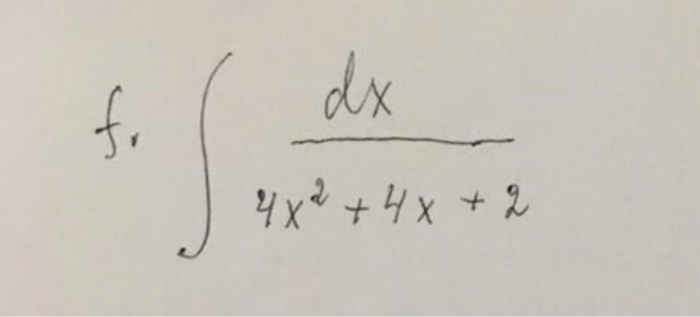 f. ∫ dx / (4x² + 4x + 2)